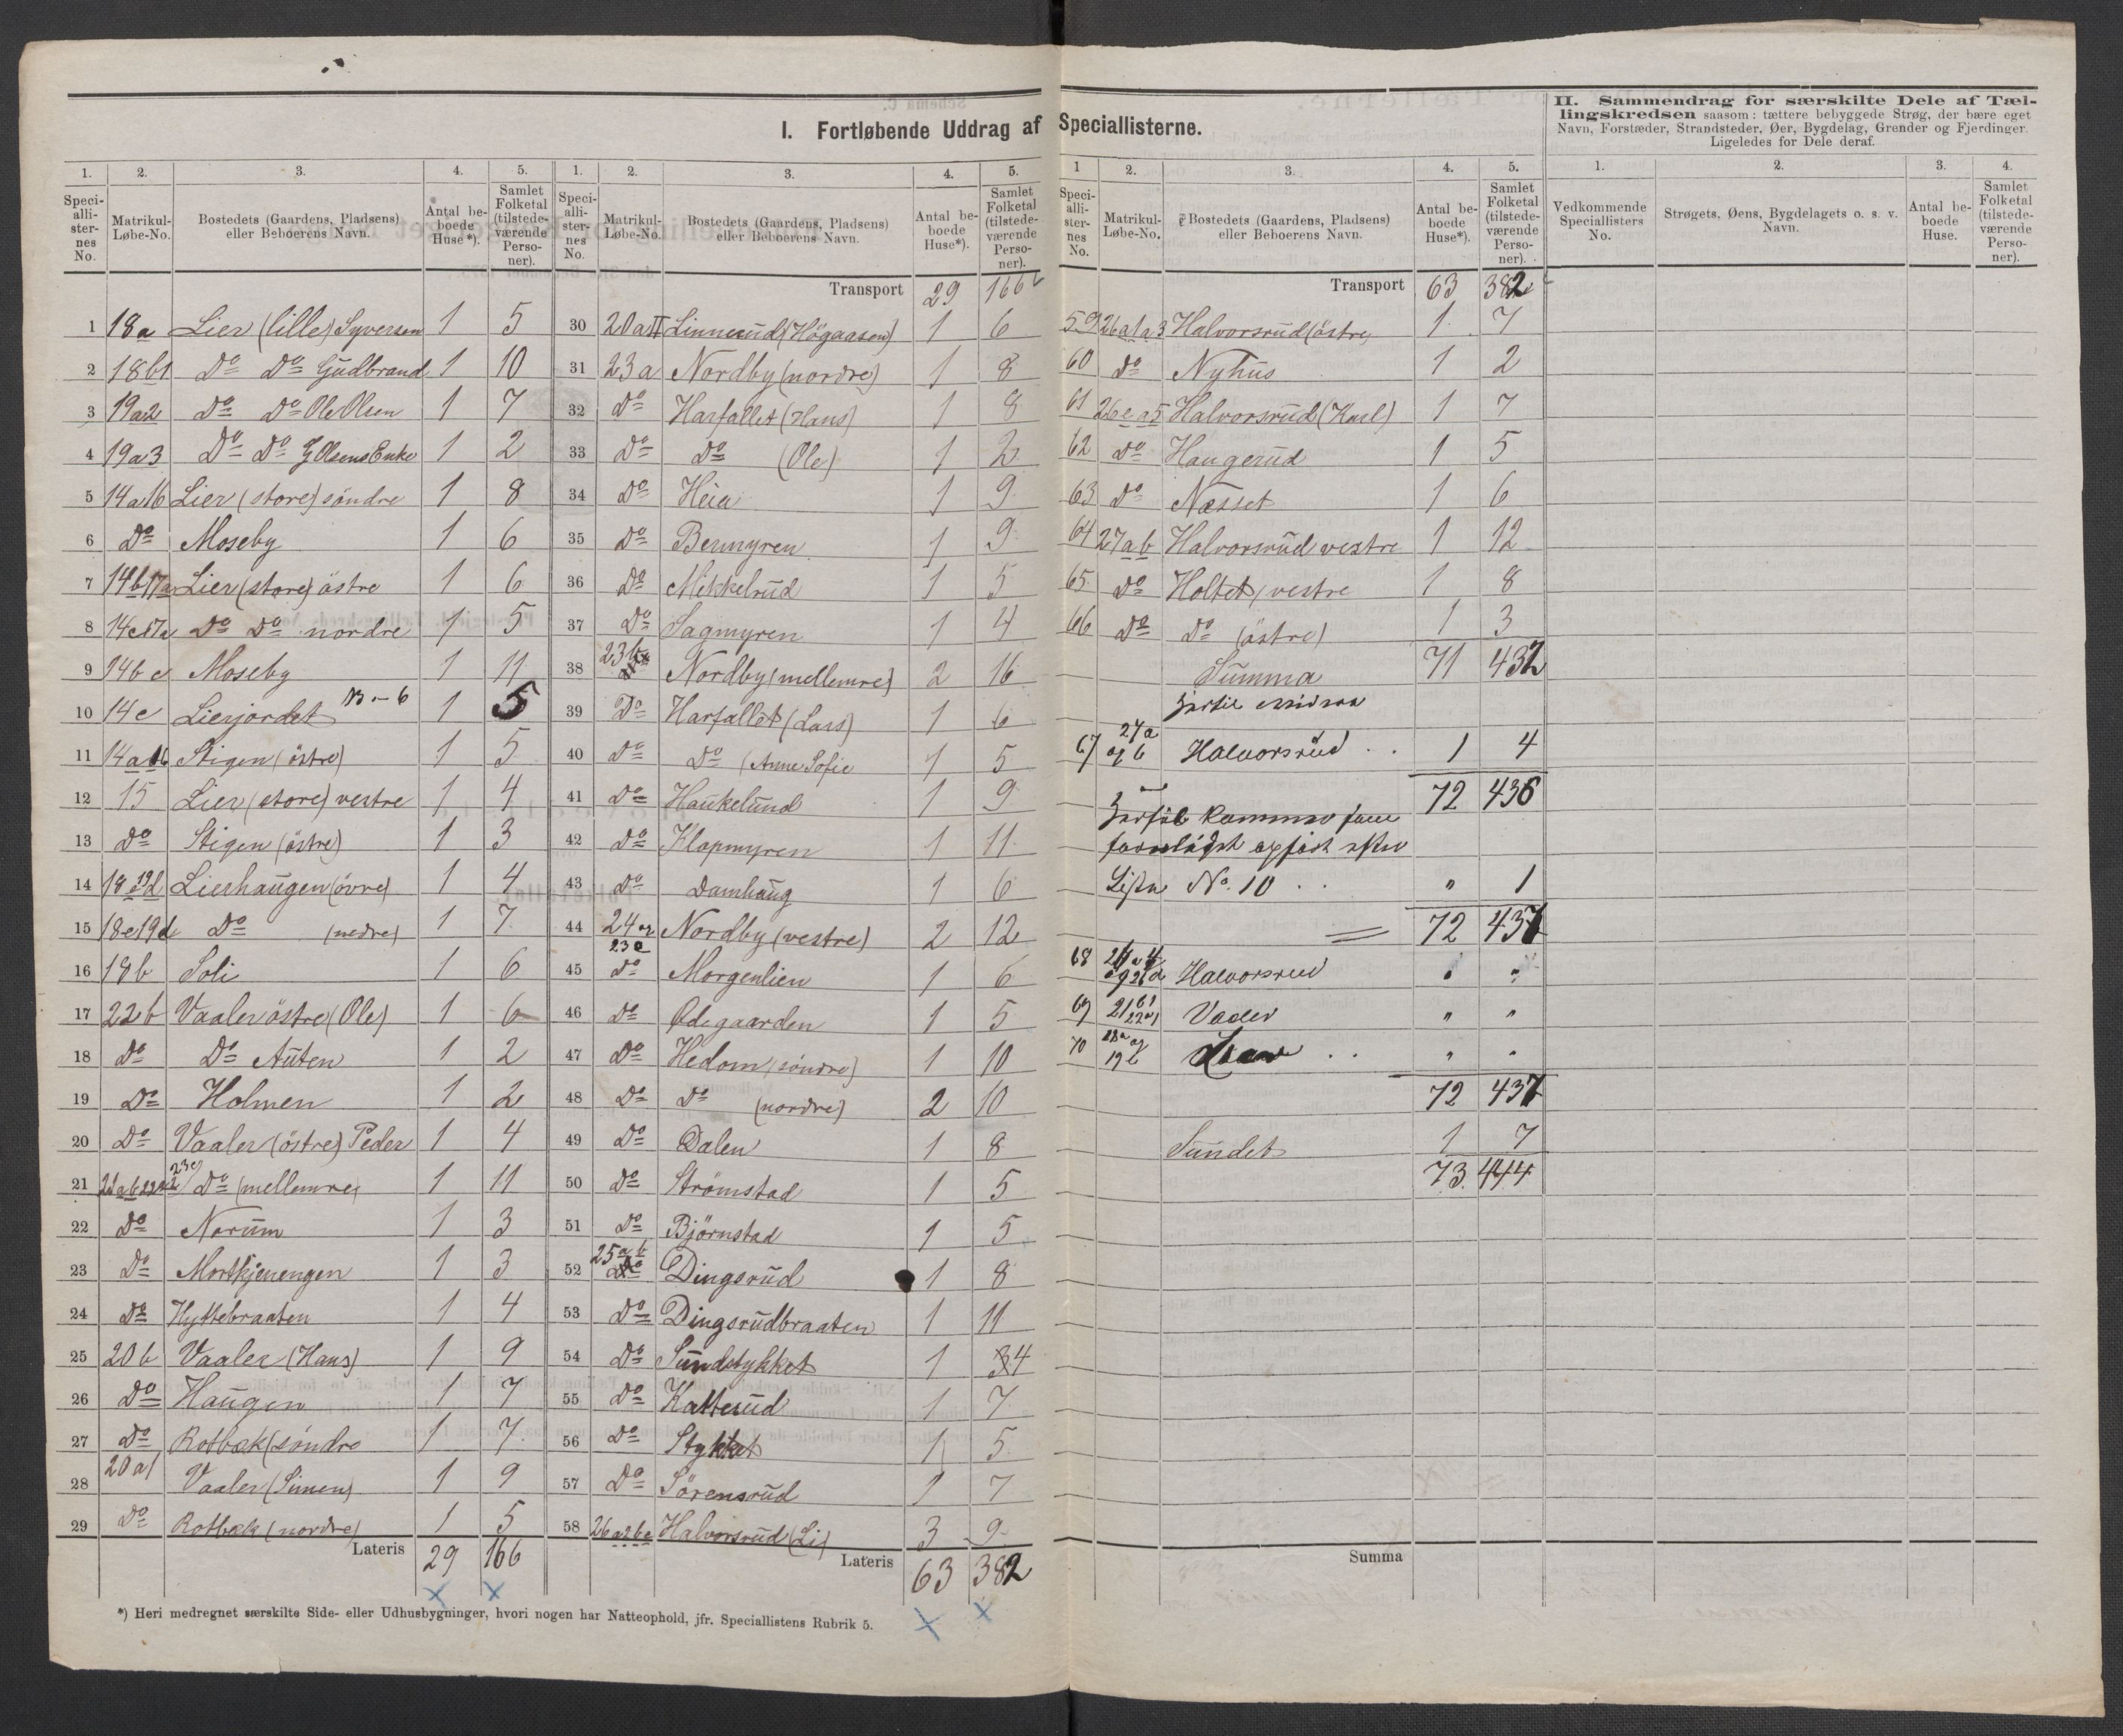 I. Fortløbende Uddrag af Speciallisterne.
1. 2. 3. 4. 5.
Speciallisternes No. Matrikul-Løbe-No. Bostedets (Gaardens, Pladsens) eller Beboerens Navn. Antal beboede Huse*). Samlet Folketal (tilstedeværende Personer).
1 18a Lier (lille) Syversen 1 5
2 18b1 Do Do Gudbrand 1 10
3 19a2 Do Do Ole Olsen 1 7
4 19a3 Do Do G Olsens Enke 1 2
5 14a16 Lier (store) söndre 1 8
6 Do Moseby 1 6
7 14b17a Lier (store) östre 1 6
8 14c17a Do Do nordre 1 5
9 14b c Moseby 1 11
10 14c Lierjordet 1 5
11 14a16 Stigen (östre) 1 5
12 15 Lier (store) vestre 1 4
13 Do Stigen (östre) 1 3
14 18 19d Lierhaugen (övre) 1 4
15 18e19d Do (nedre) 1 7
16 19b Soli 1 6
17 22b Vaaler östre (Ole) 1 6
18 Do Do Auten 1 2
19 Do Holmen 1 2
20 Do Vaaler (östre) Peder 1 4
21 Do (mellemre) 1 11
22 Do Norum 1 3
23 Do Mortkjenengen 1 3
24 Do Hyttebraaten 1 4
25 20b Vaaler (Hans) 1 9
26 Do Haugen 1 7
27 Do Rotbæk (söndre 1 7
28 20a1 Vaaler (Simen) 1 9
29 Do Rotbæk (nordre) 1 5
Lateris 29 166
*) Heri medregnet særskilte Side- eller Udhusbygninger, hvori nogen har Natteophold, jfr. Speciallistens Rubrik 5.
1. 2. 3. 4. 5.
Speciallisternes No. Matrikul-Løbe-No. Bostedets (Gaardens, Pladsens) eller Beboerens Navn. Antal beboede Huse*). Samlet Folketal (tilstedeværende Personer).
Transport 29 166
30 20aII Linnerud (Högaasen) 1 6
31 23a Nordby (nordre) 1 8
32 Do Harfallet (Hans) 1 8
33 Do Do (Ole) 1 2
34 Do Heia 1 9
35 Do Bermyren 1 9
36 Do Mikkelrud 1 5
37 Do Sagmyren 1 4
38 23b Nordby (mellemre) 2 16
39 Do Harfallet (Lars) 1 6
40 Do Do (Anne Sofie 1 5
41 Do Haukelund 1 9
42 Do Klopmyren 1 11
43 Do Damhaug 1 6
44 24 og 23c Nordby (vestre) 2 12
45 Do Morgenlien 1 6
46 Do Ödegaarden 1 5
47 Do Hedom (söndre) 1 10
48 Do Do (nordre) 2 10
49 Do Dalen 1 8
50 Do Strömstad 1 5
51 Do Björnstad 1 5
52 25a b Dingsrud 1 8
53 Do Dingsrudbraaten 1 11
54 Do Sundstykket 1 4
55 Do Katterud 1 7
56 Do Stykket 1 5
57 Do Sörensrud 1 7
58 Halvorsrud (Li) 3 9
Lateris 63 382
1 2. 3. 4. 5.
Speciallisternes No. Matrikul-Løbe-No. Bostedets (Gaardens, Pladsens) eller Beboerens Navn. Antal beboede Huse*). Samlet Folketal (tilstedeværende Personer).
Transport 63 382
59 26a1a3 Halvorsrud (östre) 1 7
60 do Nyhus 1 2
61 26e a5 Halvorsrud (Karl) 1 7
62 do Haugerud 1 5
63 do Næsset 1 6
64 27a b Halvorsrud vestre 1 12
65 do Holtet (vestre 1 8
66 Do Do (östre) 1 3
Summa 71 432
67 27a og b Halvorsrud 1 4
72 436
Liste No. 10 " 1
72 437
68 Halvorsrud " "
69 Vaaler " "
70 18a og 19b " "
72 437
Sundet 1 7
73 444
Summa
II. Sammendrag for særskilte Dele af Tællingskredsen saasom: tættere bebyggede Strøg, der bære eget Navn, Forstæder, Strandsteder, Øer, Bygdelag, Grender og Fjerdinger. Ligeledes for Dele deraf.
1. 2. 3. 4.
Vedkommende Speciallisters No. Strøgets, Øens, Bygdelagets o. s. v. Navn. Antal beboede Huse. Samlet Folketal (tilstedeværende Personer).